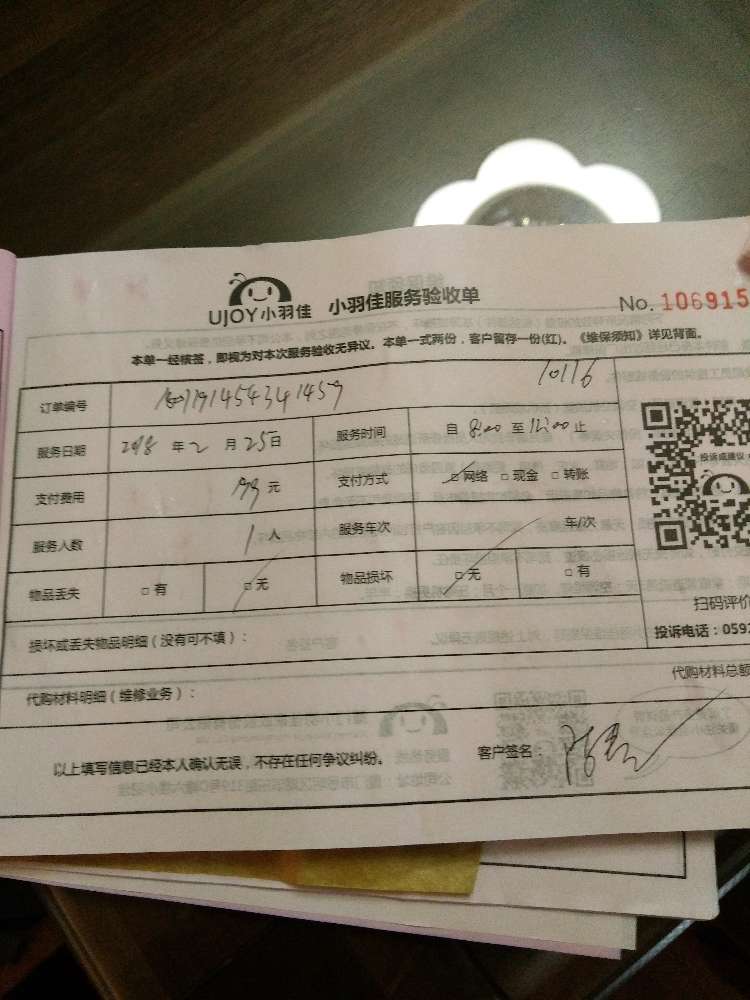 UJOY小羽佳 小羽佳服务验收单 No. 106915
本单一经核签，即视为对本次服务验收无异议。本单一式两份，客户留存一份(红)。《维保须知》详见背面。
订单编号 10116
服务日期 2018 年 2 月 25 日 服务时间 自 8:00 至 12:00 止
支付费用 元 支付方式 □ 网络 □ 现金 □ 转账
服务人数 1 人 服务车次 车/次
物品丢失 □ 有 □ 无 物品损坏 □ 无 □ 有
投诉或建议
扫码评价
损坏或丢失物品明细（没有可不填）：
投诉电话：059
代购材料明细（维修业务）： 代购材料总额
以上填写信息已经本人确认无误，不存在任何争议纠纷。 客户签名：